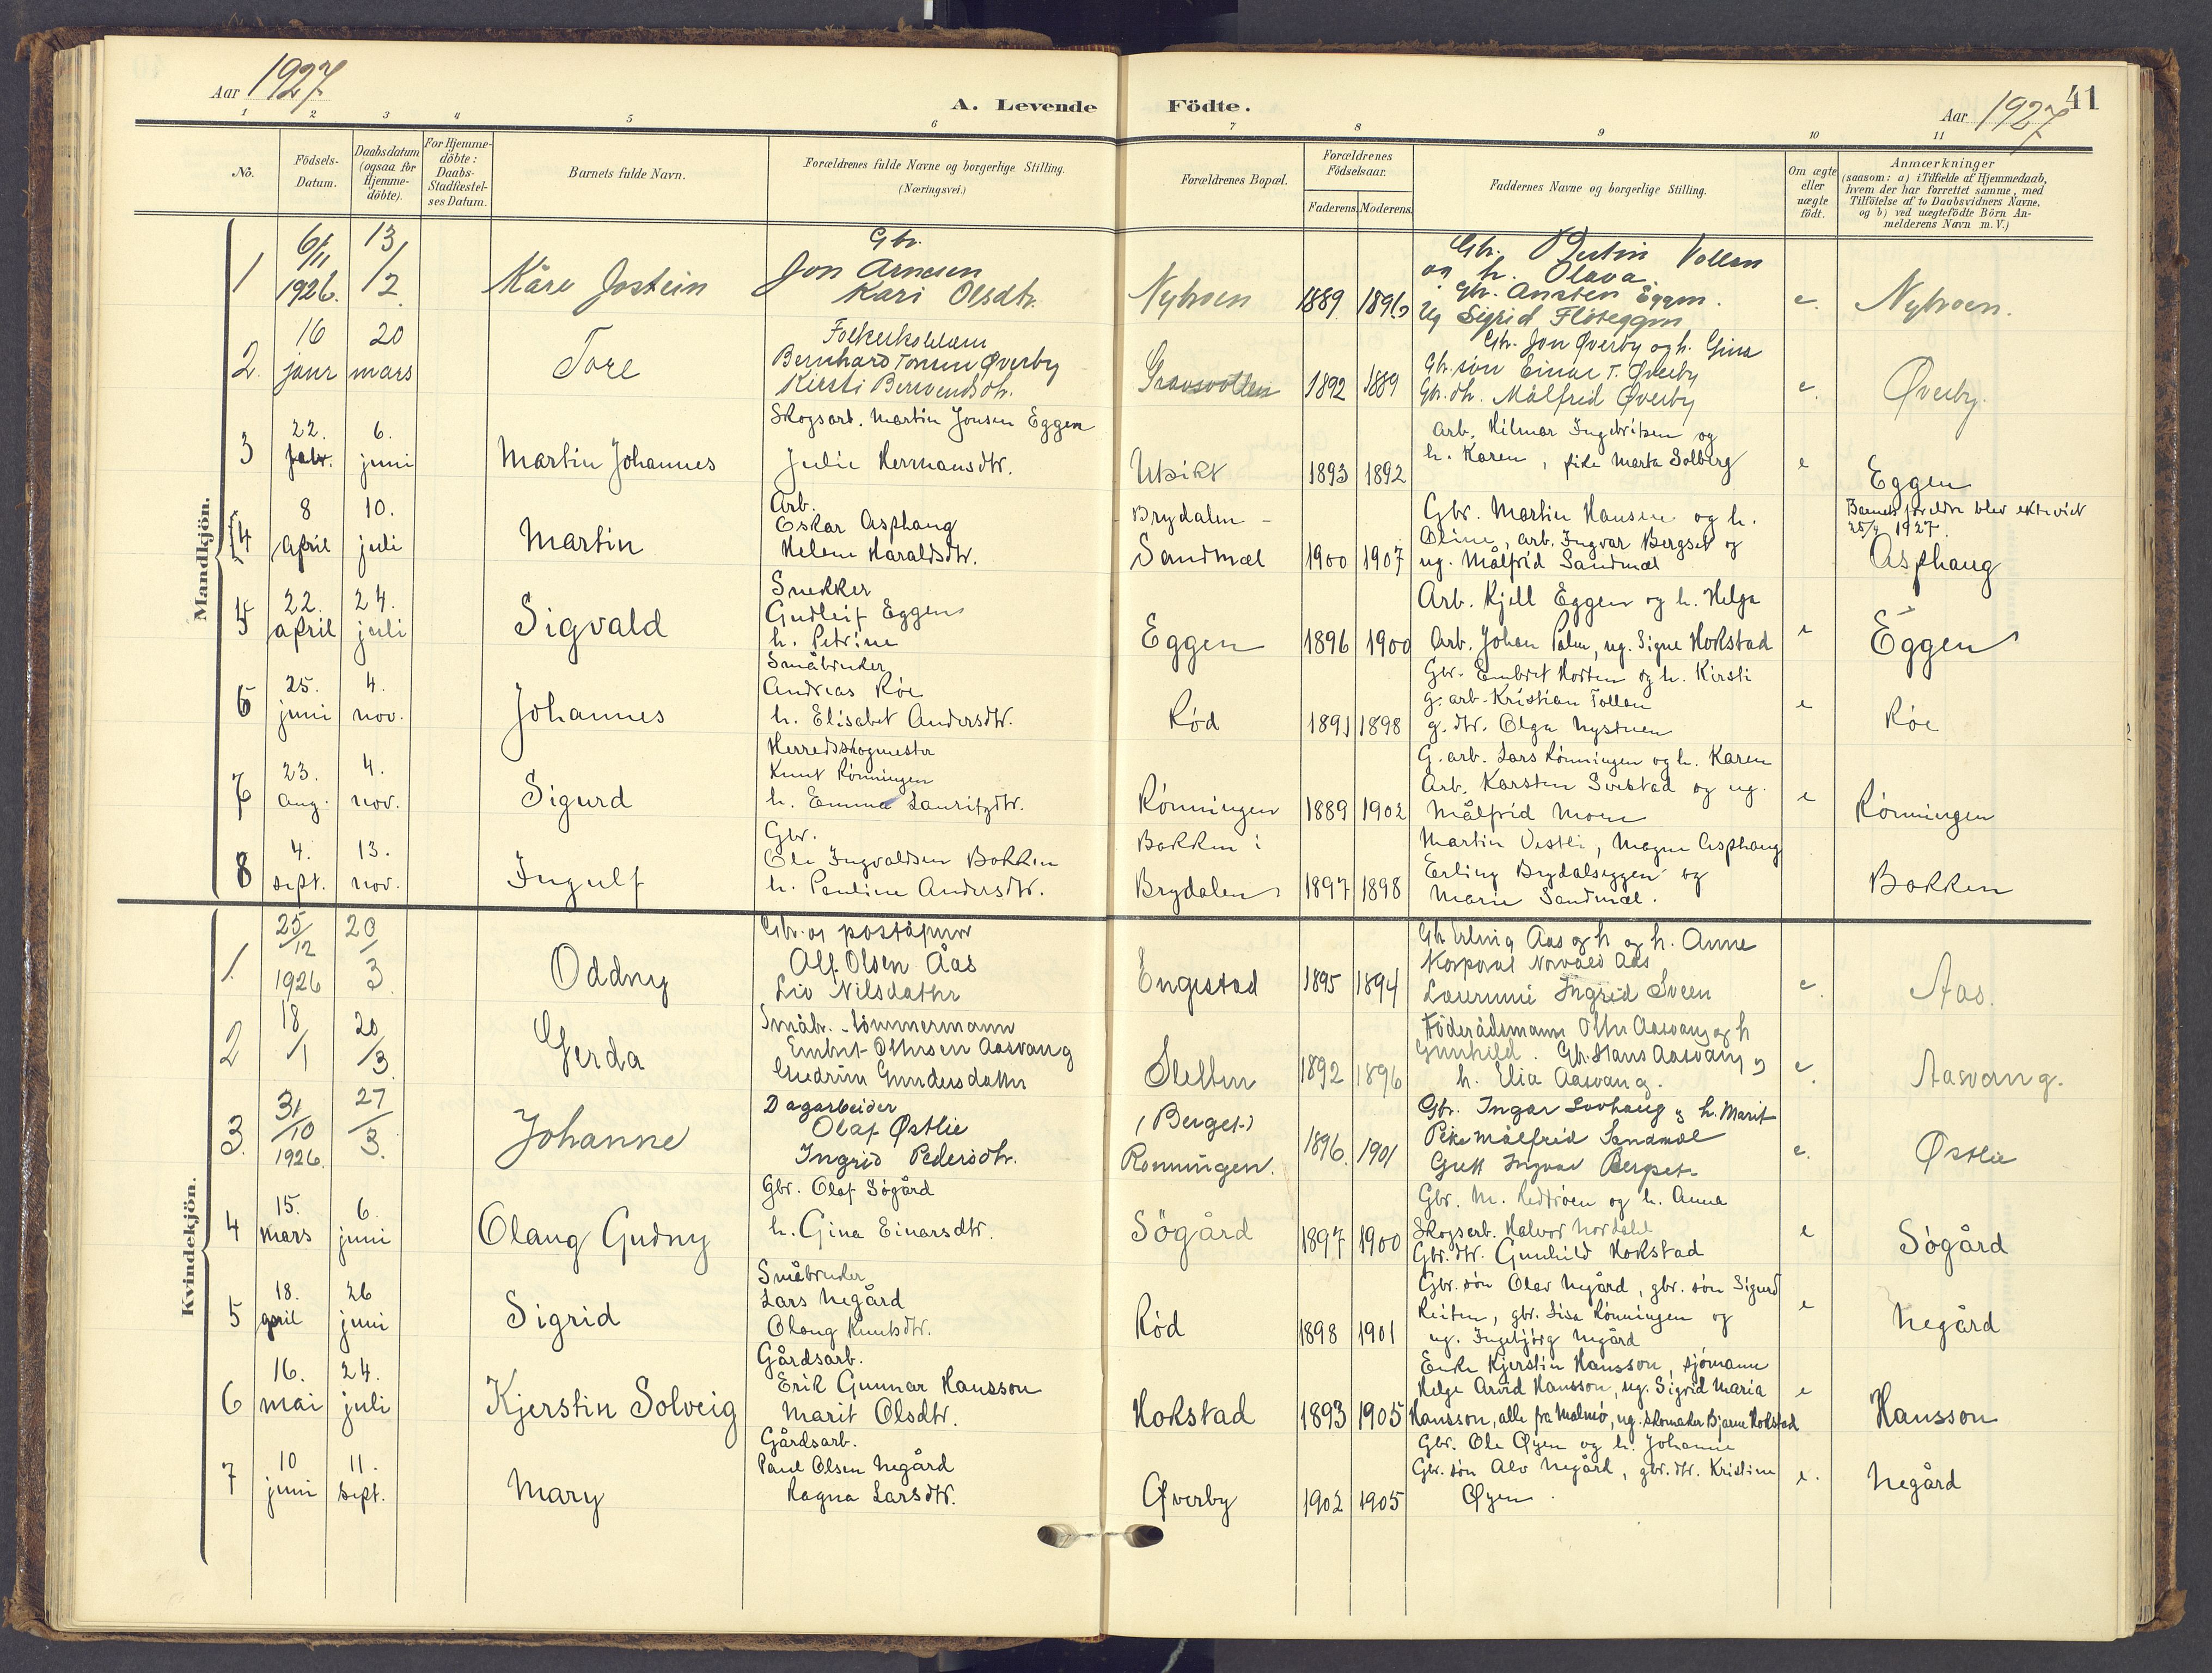 Aar 1927
A. Levende Födte.
Aar 1927
41
1 2 3 4 5 6 7 8 9 10 11
No.
Födsels-Datum.
Daabsdatum (ogsaa for Hjemme-döbte).
For Hjemme-döbte: Daabs-Stadfæstel-ses Datum.
Barnets fulde Navn.
Forældrenes fulde Navne og borgerlige Stilling.
(Næringsvei.)
Forældrenes Bopæl.
Forældrenes Födselsaar.
Faderens. Moderens.
Faddernes Navne og borgerlige Stilling.
Om ægte eller uægte födt.
Anmærkninger
(saasom: a) i Tilfælde af Hjemmedaab,
hvem der har forrettet samme, med
Tilföielse af to Daabsvidners Navne.
og b) ved uægtefödte Börn An-
melderens Navn m. V.)
Mandkjön.
1 6/11 1926. 13/2. Kåre Jostein
Gbr.
Jon Arnesen
Kari Olsdtr.
Nybroen 1889 1896
Gbr. Vollan
og h. Olava.
Gbr. Ansten Eggen.
Ug Sigrid Fløteggen
e. Nybroen.
2. 16 janr 20 mars Tore
Bernhard Tonsen Øverby
Kirsti Berventsdtr.
1892 1889
Gbr. Jon Øverby og h. Gina
Gbr. søn Einar T. Øverby
Gbr. dtr. Målfrid Øverby
e. Øverby.
3 22. febr. 6. juni Martin Johannes
Skogsarb. Martin Jonsen Eggen
Julie Hermansdtr.
Utsikt 1893 1892
Arb. Hilmar Ingebritsen og
h. Karen, pike Marta Solberg
e Eggen
4 8 april 10. juli Martin
Arb.
Oskar Asphaug
Helene Haraldsdtr.
Brydalen -
Sandmæl 1900 1907
Gbr. Martin Hansen og h.
Oline, arb. Ingvar Bergset og
ug. Målfrid Sandmæl
Barnets foreldre blev ekteviet
25/4 1927.
Asphaug
5 22. april 24. juli Sigvald
Snekker
Gudleif Eggen
h. Petrine
Eggen 1896 1900
Arb. Kjell Eggen og h. Helga
Arb. Johan Palm, ug. Signe Hokstad
e Eggen
6 25. juni 4. nov. Johannes
Småbruker
Andreas Røe
h. Elisabet Andersdtr.
Rød 1891 1898
Gbr. Embret Horten og h. Kirsti
g. arb. Kristian Tollan
g. dtr. Olga Nystuen
e Røe
7 23. aug. 4. nov. Sigurd
Herredsskogmester
Knut Rønningen
h. Emma Lauritzdtr.
Rønningen 1889 1902
G. arb. Lars Rønningen og h. Karen
Arb. Karsten Svebstad og ug.
Målfrid Moen
e Rønningen
8 4. sept. 13. nov. Ingulf
Gbr.
Ole Ingvaldsen Bakken
h. Pauline Andersdtr.
Bakken i
Brydalen 1897 1898
Martin Vestli, Magne Asphaug
Erling Brydalseggen og
Marie Sandmæl.
Bakken
Kvindekjön.
1. 25/12 1926 20/3. Oddny
Gbr. og poståpner
Alf Olsen Åas
Liv Nilsdatter
Engestad 1895 1894
Gbr Erling Aas og h og h. Anne
Korporal Norvald Aas
Lærerinne Ingrid Sveen
e. Aas.
2 18/1 20/3. Gerda
Småbr. - tømmermann
Embret Othersen Aasvang
Gudrun Gundersdatter
Sletten 1892 1896
Föderådsmann Other Aasvang og h
Gunhild. Gbr. Hans Aasvang og
h. Elia Aasvang.
e. Aasvang.
3. 31/10 1926. 27/3. Johanne
Dagarbeider
Olaf Østlie
Ingrid Pedersdtr.
(Berget)
Rønningen. 1896. 1901
Gbr. Ingar Lovhaug og h. Marit
Pike Målfrid Sandmæl
Gutt Ingvar Bergset
e. Østlie
4 15. mars 6. juni Olaug Gudny
Gbr. Olaf Søgård
h. Gina Einarsdtr.
Søgård 1897 1900
Gbr. M. Rødtrøen og h. Anna
Skogsarb. Halvor Nordahl
Gbr. dtr. Gunhild Hokstad
e Søgård
5 18. april 26 juni Sigrid
Småbruker
Lars Negård
Olaug Knutsdtr.
Rød 1898 1901
Gbr. søn Olav Negård, gbr. søn Sigurd
Reiten, gbr. Lisa Rønningen og
ug. Ingebjørg Negård
e Negård
6 16. mai 24. juli Kjerstin Solveig
Gårdsarb.
Erik Gunnar Hansson
Marit Olsdtr.
Hokstad 1893 1905
Enke Kjerstin Hansson, sjømann
Helge Arvid Hansson, ug. Sigrid Maria
Hansson, alle fra Malmø, ug. skomaker Bjarne Hokstad
e Hansson
7 10 juni 11. sept. Mary
Gårdsarb.
Paul Olsen Negård
Ragna Larsdtr.
Øverby 1902 1905
Gbr. Ole Øyen og h. Johanne
Gbr. søn Alv Negård, gbr. dtr. Kristine
Øyen.
e. Negård